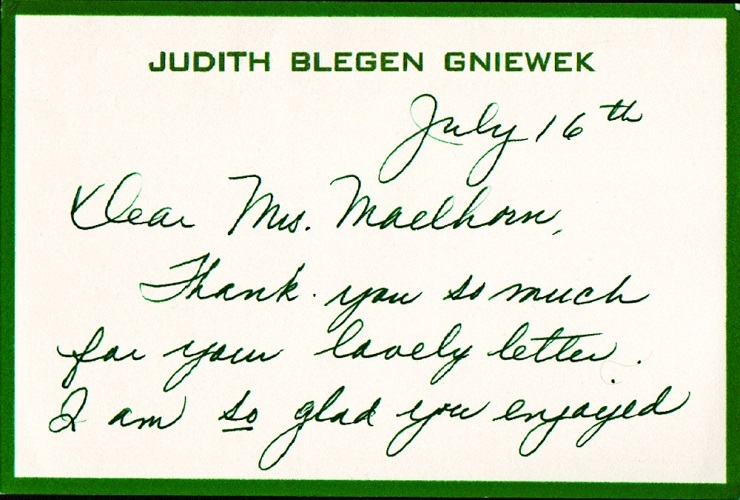 JUDITH BLEGEN GNIEWEK
July 16th
Dear Mrs. Maelhorn,
Thank you so much
for your lovely letter.
I am so glad you enjoyed